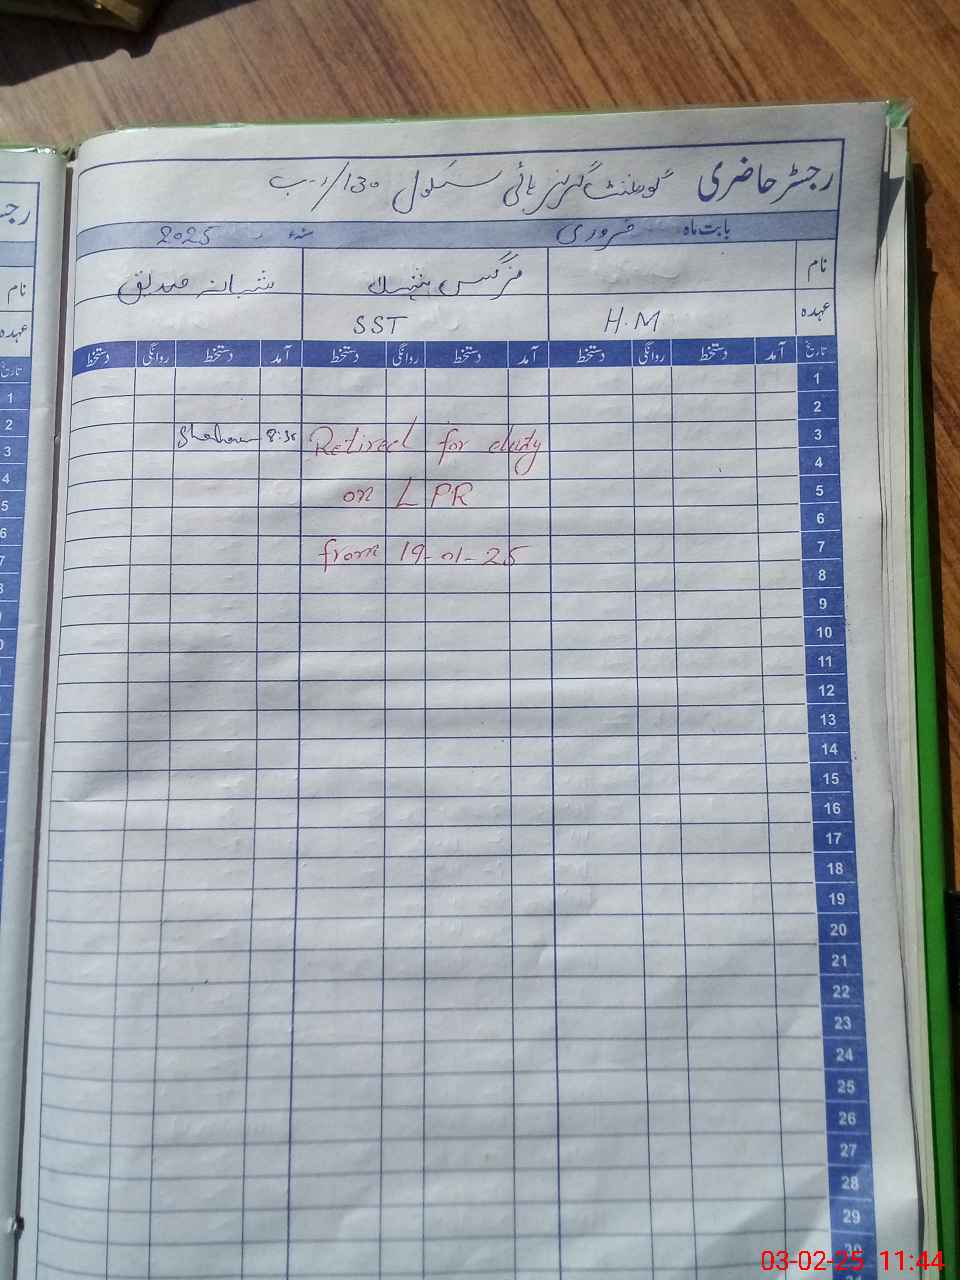 رجسٹر حاضری گورنمنٹ گرلز ہائی سکول 130/ر-ب
بابت ماہ فروری سنہ 2025
نام نرگس شبانہ صدیق
عہدہ H.M SST
تاریخ آمد دستخط روانگی دستخط آمد دستخط روانگی دستخط آمد دستخط روانگی دستخط
1
2
3 Retired for duty 8:30
4
5 on LPR
6
7 from 19-01-25
8
9
10
11
12
13
14
15
16
17
18
19
20
21
22
23
24
25
26
27
28
29
30
رجـ
نام
عہدہ
تاریخ
1
2
3
4
5
6
7
03-02-25 11:44